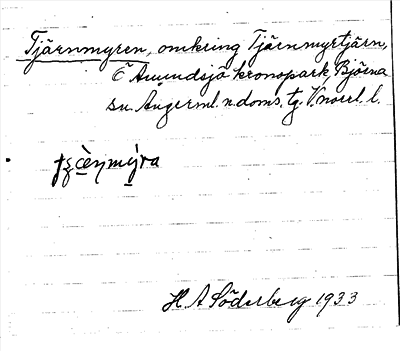 Tjärnmyren, omkring Tjärnmyrtjärn,
Ö Amundsjö kronopark, Björna
sn. Ångerml. n. doms. tg. V.norrl. l.
H A Söderberg 1933